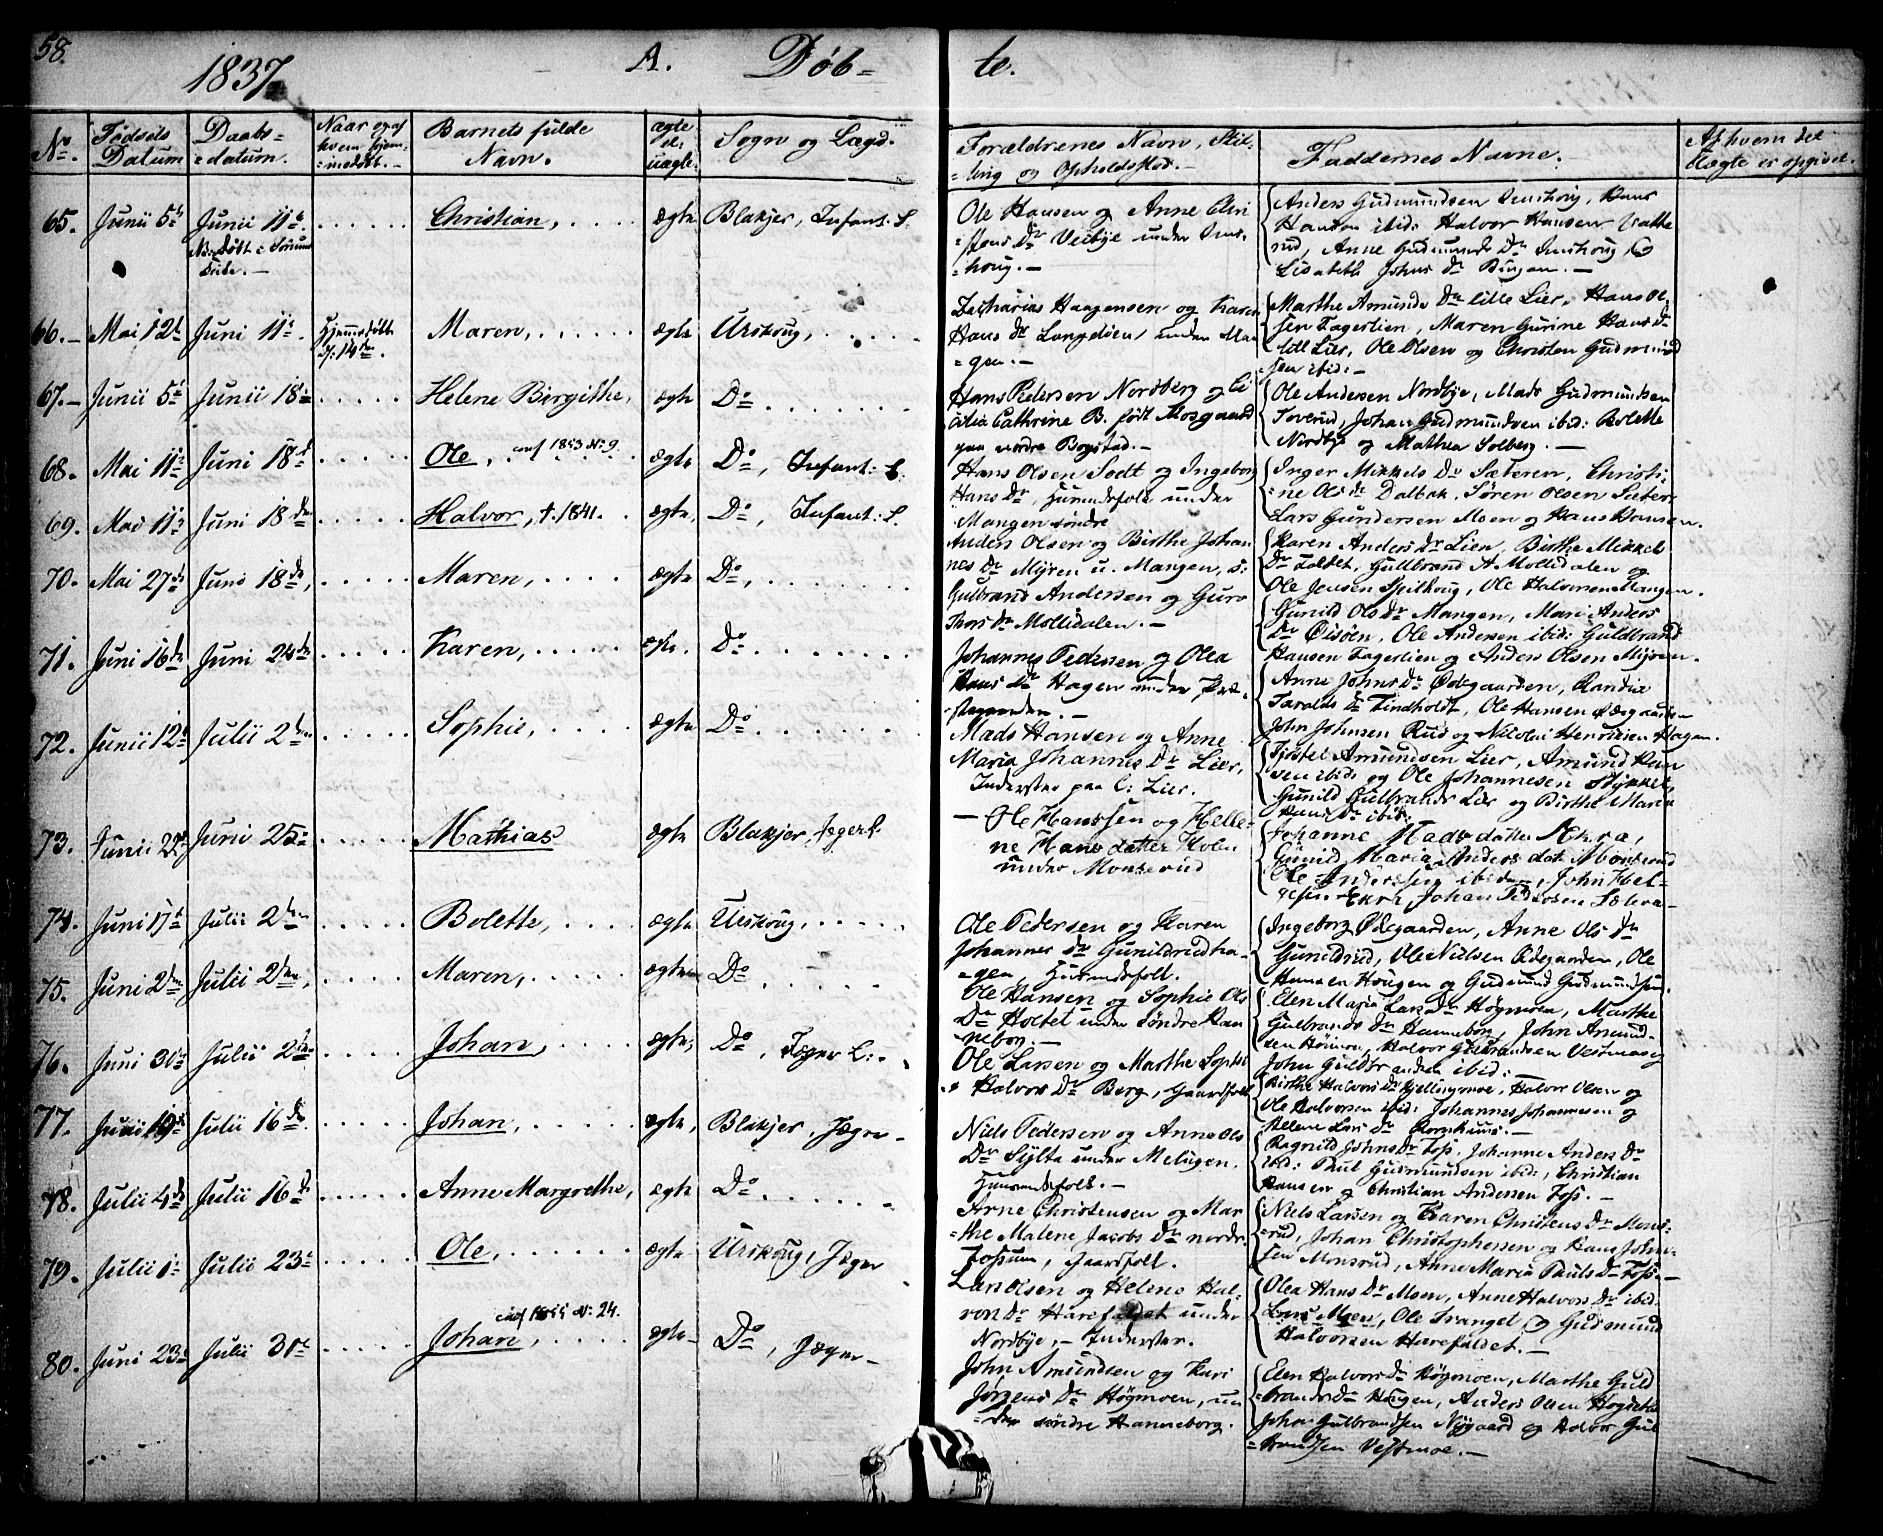 58.
1837
A. Døb-
te.
No.
Fødsels Datum
Daabs-
=datum.
Naar og af
hvem hjem-
=medøbt. -
Barnets fulde
Navn.
ægte
el:
uægte
Sogn og Lægd.
Forældrenes Navn, Stil-
=ling og Opholdssted. -
Faddernes Navne. -
Af hvem det
Uægte er opgivet.
65. Junii 5te Junii 11te Christian, ægte Blakjer, Infant: L.
Ole Hansen og Anne Chri
=stens Dr Veibye under
=houg. -
Anders Gudmundsen
Hansen ibid: Halvor Hansen
Anne Gudmunds Dr
Lisabeth Johns Dr Bingen. -
66. - Mai 12te Juni 11te Hjemmedøbt 14de Maren, ægte Urskoug,
Zacharias Haagensen og Karen
Hans Dr under Man
=gen. -
Marthe Amunds Dr lille Lier, Hans Ol
sen Fagerlien, Maren Gurine Hans Dr
lille Lier, Ole Olsen og Christen Gudmund
sen ibid: -
67. - Junii 5te Junii 18de Helene Birgithe, ægte Do
Hans Pedersen Nordberg og Ce
cilia Cathrine B. født Mosgaard
paa nordre Bogstad. -
Ole Andersen Nordbye, Mads Gudmundsen
Toverud, Johan Gudmundsen ibid: Bolette
Nordbye og Mathea Solberg. -
68. Mai 11te Juni 18de Ole, conf 1853 No 9. ægte Do, Infant: L.
69. Mai 11te Juni 18de Halvor, †. 1841. ægte, Do, Infant: L.
Hans Olsen Sodt og Ingeborg
Hans Dr, Huusmdsfolk under
Mangen søndre
Inger Mikkels Dr Sæteren, Christi-
=ne Ols Dr Dalbak, Søren Olsen Sæteren
Lars Gundersen Moen og Hans Hansen.
70. Mai 27de Juni 18de, Maren, ægte Do,
Anders Olsen og Birthe Johan
nes Dr Myren u. Mangen, s:
Karen Anders Dr Lien, Birthe Mikkel
Dr Toltet, Gullbrand A. Mollidalen og
Ole Jensen Spilhoug, Ole Halvorsen Mangen.
71. Juni 16de Juni 24de Karen, ægte. Do
Gulbrand Andersen og Guro
Thors Dr Mollidalen. -
Gunild Ols Dr Mangen, Mari Anders
Dr Øisøen, Ole Andersen ibid: Guldbrand
Hansen Fagerlien og Anders Olsen Myren.
72. Junii 12te Julii 2den Sophie, ægte Do
Johannes Pedersen og Olea
Hans Dr Hagen under Præ-
=stegaarden. -
Anne Johns Dr Ødegaarden, Randia
Taralds Dr Tindholdt, Ole Hansen Ødegaarden
John Johnsen Rud og Nicolai Henriksen Hagen.
Mads Hansen og Anne
Maria Johannes Dr Lier,
Inderster paa l: Lier.
Kjostel Amundsen Lier, Amund Han
sen ibid: og Ole Johannesen Stykket,
Gunild Gulbrands Lier og Birthe Maria
Hans Dr ibid:
73. Junii 22de Juni 25de Mathias ægte Blakjer, Jæger L.
- Ole Hanssen og Helle-
ne Hansdatter Holm
under Monserud
Johanne Madsdatter Aekra,
Gunild Maria Andersdat. Monserud
Ole Anderssen ibidem, John Hel-
gesen Ekra, Johan Pederssen
74. Juni 17de Julii 2den Bolette, ægte Urskoug,
Ole Pedersen og Karen
Johannes Dr Gunildrudha-
=gen, Huusmdsfolk.
Ingeborg Ødegaarden, Anne Ols Dr
Gunildrud, Ole Nielsen Ødegaarden, Ole
Hansen Hougen og Gudmund Gudmundsen.
75. Juni 2den Julii 2den, Maren, ægte Do
Ole Hansen og Sophie Ols
Dr Holtet under søndre Han
neborg. -
Elen Maria Lars Dr Høgmoen, Marthe
Gulbrands Dr Hanneborg, John Amund-
sen Høimoe, Halvor Gulbrandsen Vestmoe og
John Guldbrandsen ibid:
76. Juni 30te Julii 2den Johan, ægte, Do, Jæger L:
Ole Larsen og Marthe Sophi
e Halvors Dr Berg, Gaardfolk
Birthe Halvors Dr Kjellingmoe, Halvor Olsen og
Ole Halvorsen ibid: Johannes Johannesen og
Helene Lars Dr Kornhuus. -
77. Juni 19de Julii 16de Johan, ægte, Blakjer, Jæger -
Niels Pedersen og Anne Ols
Dr Sylta under Melugen,
Huusmdsfolk. -
Ragnild Johns Dr Foss, Johanne Anders Dr
ibid: Paul Gudmundsen ibid:, Christian
Hansen og Christian Andersen Foss. -
78. Julii 4de Julii 16de Anne Margrethe, ægte Do
Arne Christensen og Mar
=the Malene Jacobs Dr nordr.
Fossum, Gaardfolk.
Niels Larsen og Karen Christens Dr Mons-
=rud, Johan Christophersen og Hans John-
sen Monsrud, Anne Maria Pauls Dr Foss. -
79. Julii 1te Julii 23de Ole, ægte Urskoug, Jæger
Lars Olsen og Helene Hal-
vors Dr Harefaldet under
Nordbye, - Inderster.
Olea Hans Dr Moen, Anne Halvors Dr ibid:
Lars Moen, Ole Trangel og Gudmund
Halvorsen Harefaldet. -
80. Juni 23de Julii 30te Johan, conf 1855 No: 24. ægte Do, Jæger -
John Amundsen og Kari
Jørgens Dr Høgmoen, un
=der søndre Hanneborg.
Elen Halvors Dr Høgmoen, Marthe Guld
=brands Dr Hougen, Anders Olsen
John Gulbrandsen Nygaard og Halvor Gul
=brandsen Vestmoe. -